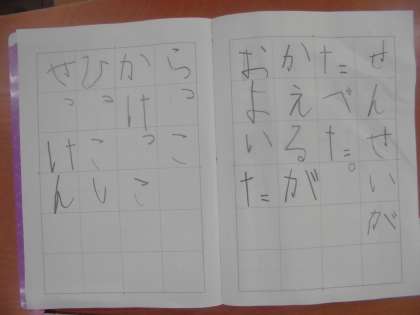 せんせいが
たべた。
かえるが
およいた
らっこ
かけっこ
ひっこし
せっけん